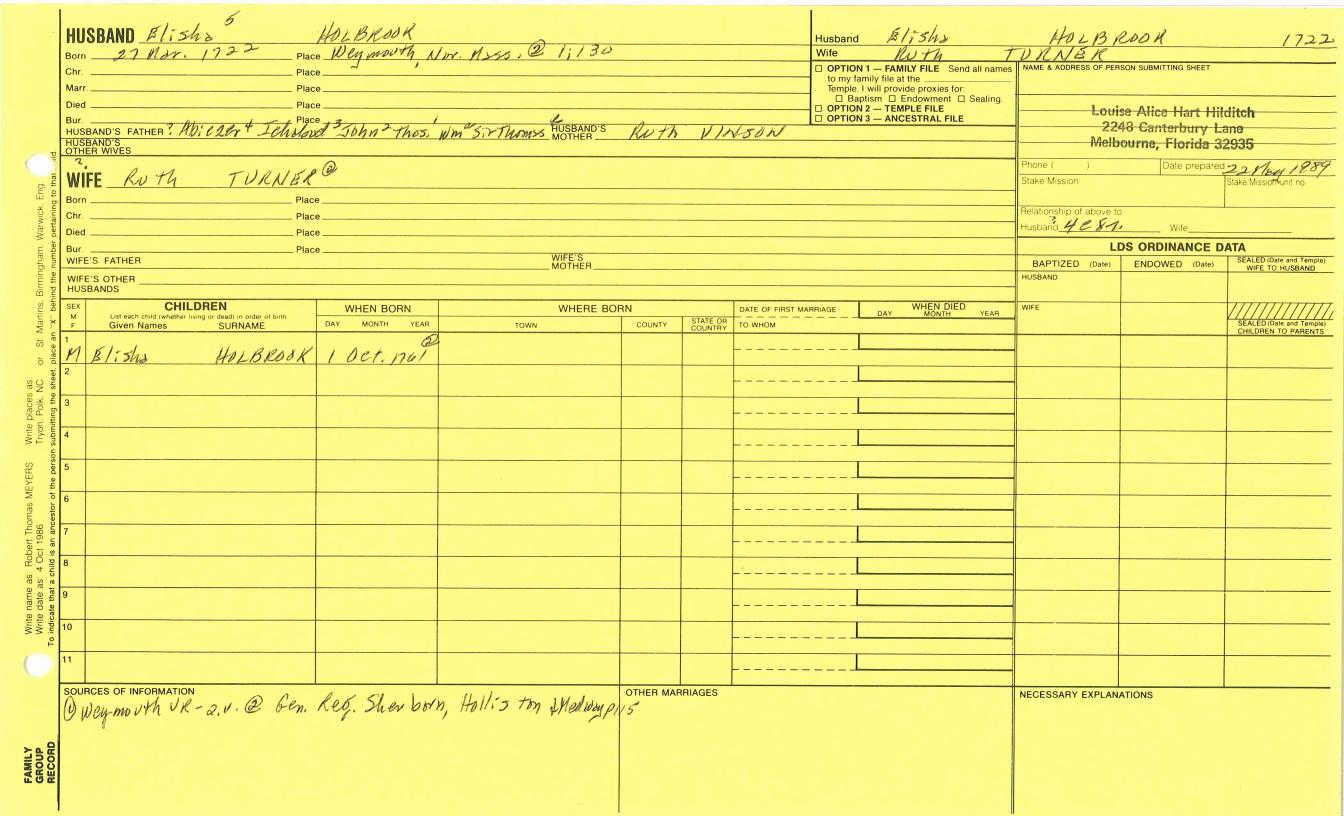 HUSBAND Elisha 5 HOLBROOK
Born 27 Mar. 1722 Place Weymouth, Nor. Mass. @ 1;130
Chr. Place
Marr. Place
Died Place
Bur. Place
HUSBAND'S FATHER ? Abiezer 4 Ichabod 3 John 2 Thos. 1 Wm a Sir Thomas HUSBAND'S MOTHER Ruth VINSON
HUSBAND'S OTHER WIVES
?
WIFE Ruth TURNER @
Born Place
Chr. Place
Died Place
Bur. Place
WIFE'S FATHER WIFE'S MOTHER
WIFE'S OTHER HUSBANDS
Husband Elisha HOLBROOK 1722
Wife Ruth TURNER
☐ OPTION 1 — FAMILY FILE Send all names
to my family file at the
Temple. I will provide proxies for:
☐ Baptism ☐ Endowment ☐ Sealing.
☐ OPTION 2 — TEMPLE FILE
☐ OPTION 3 — ANCESTRAL FILE
NAME & ADDRESS OF PERSON SUBMITTING SHEET
Louise Alice Hart Hilditch
2248 Canterbury Lane
Melbourne, Florida 32935
Phone ( ) Date prepared 22 May 1989
Stake Mission Stake Mission unit no.
Relationship of above to
Husband Wife
LDS ORDINANCE DATA
BAPTIZED (Date) ENDOWED (Date) SEALED (Date and Temple) WIFE TO HUSBAND
HUSBAND
WIFE
SEALED (Date and Temple) CHILDREN TO PARENTS
SEX M F
CHILDREN
List each child (whether living or dead) in order of birth
Given Names SURNAME
WHEN BORN
DAY MONTH YEAR
WHERE BORN
TOWN COUNTY STATE OR COUNTRY
DATE OF FIRST MARRIAGE
TO WHOM
WHEN DIED
DAY MONTH YEAR
1 M Elisha HOLBROOK 1 Oct. 1761 @
2
3
4
5
6
7
8
9
10
11
SOURCES OF INFORMATION
① Weymouth VR - 2.v. @ Gen. Reg. Sherborn, Holliston & Medway p115
OTHER MARRIAGES
NECESSARY EXPLANATIONS
Write name as: Robert Thomas MEYERS Write places as: Tryon, Polk, NC or St. Martins, Birmingham, Warwick, Eng.
Write date as: 4 Oct 1986
To indicate that a child is an ancestor of the person submitting the sheet, place an "X" behind the number pertaining to that child.
FAMILY
GROUP
RECORD